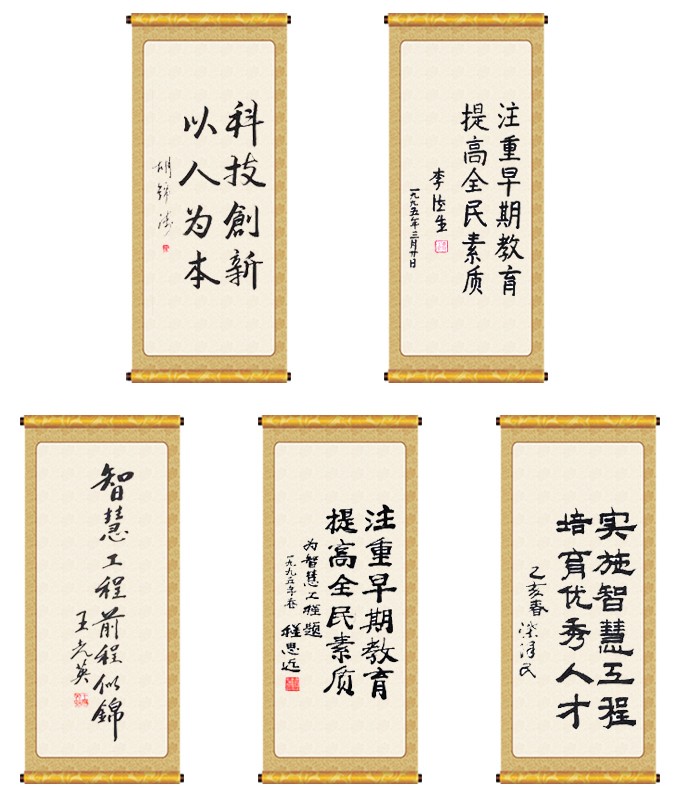 科技創新
以人为本
胡锦涛
注重早期教育
提高全民素质
李德生
一九九五年三月廿日
智慧工程前程似錦
王光英
注重早期教育
提高全民素质
为智慧工程题
一九九五年春
程思远
实施智慧工程
培育优秀人才
乙亥春
梁泽民